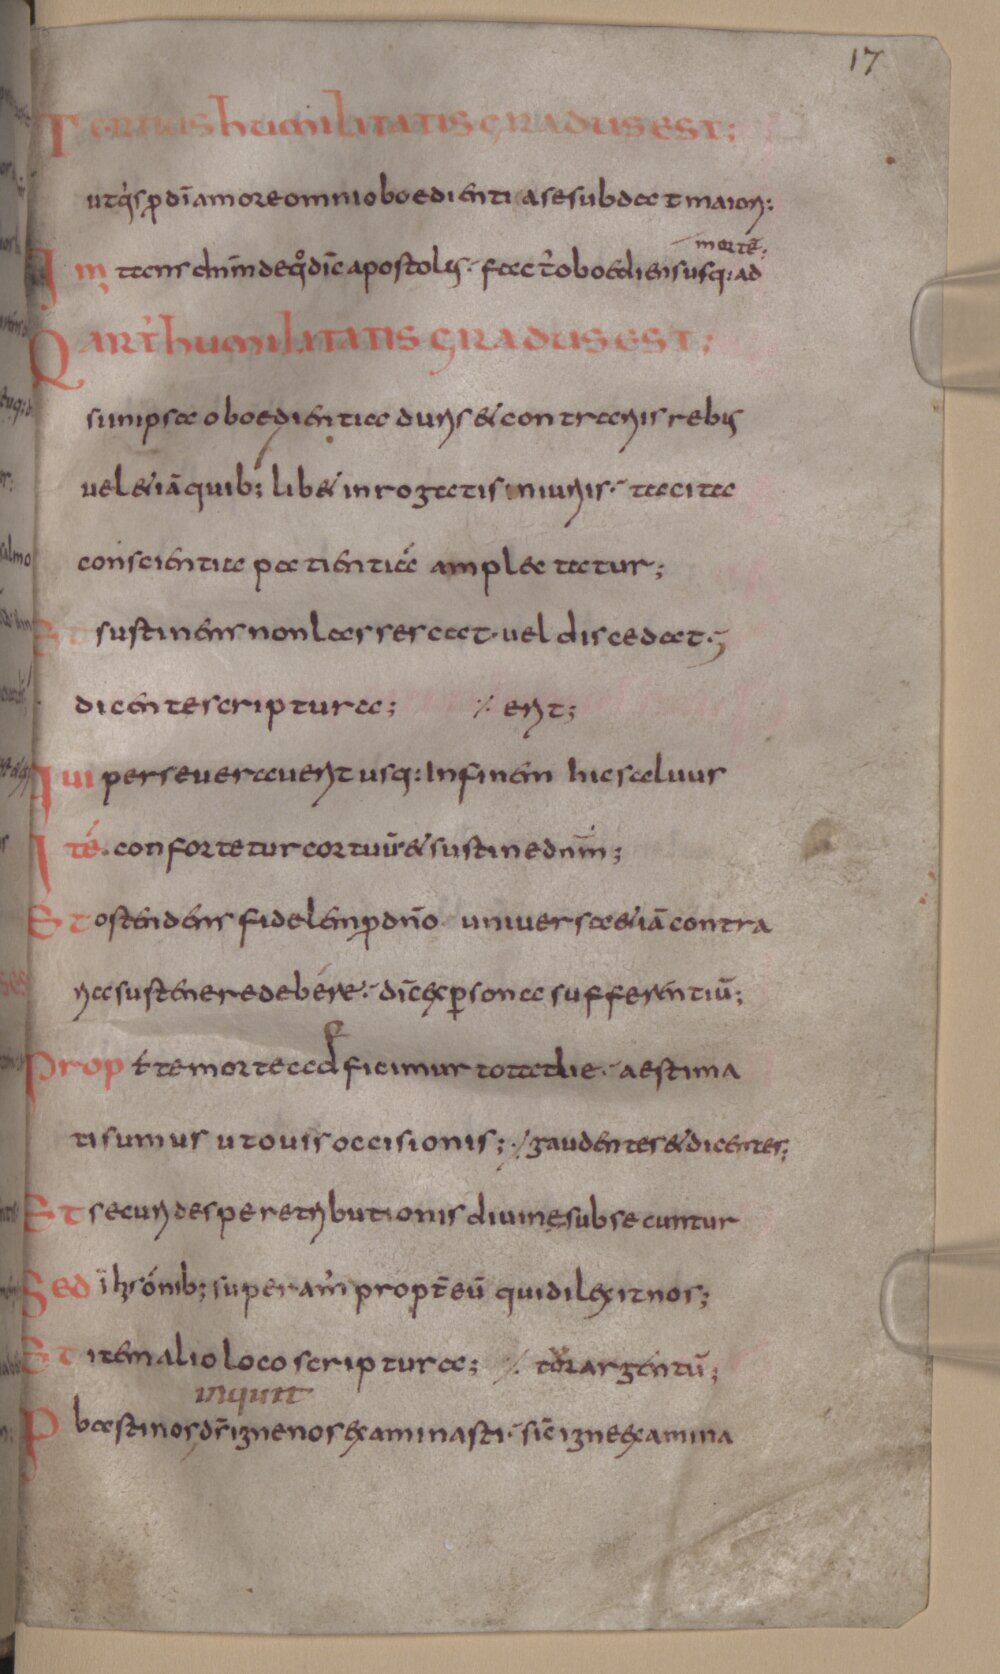 17
Tertius humilitatis gradus est;
ut q̇s ꝓ dī amore omni oboedientia se subdat maiori:
mortē.
Imitans dnm̄ de qͦ dic̄ apostolꝰ. fact᷒ oboediens usq: ad
Qart᷒ humilitatis gradus est;
si in ipsa oboedientia duris & contrariis rebꝰ
uel &iā quib; lib& inrogatis iniuriis. tacita
conscientia patientiā amplectatur;
Et sustinens non lassescat. uel discedat.
dicente scriptura; ⁒ erit;
Qui perseuerauerit usq: in finem hic saluus
Itē. confortetur cor tuū & sustine dnm̄;
Et ostendens fidelem ꝓ dnō uniuersa &iā contra
ria sustinere debere. dic̄ ex ꝑsona sufferentiū;
Propt̄ te morte adficimur tota die. aestima
ti sumus ut oues occisionis; ⁒ gaudentes & dicentes;
Et securi de spe retributionis diuinę subsecuntur
Sed in his omnib; superam᷒ propt̄ eū qui dilexit nos;
Et item alio loco scriptura; ⁒ tōr argentū;
inquit
Pbasti nos dr̄ igne nos examinasti. sic̄ igne examina